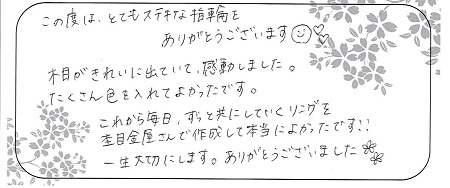 この度は、とてもステキな指輪を
ありがとうございます
木目がきれいに出ていて、感動しました。
たくさん色を入れてよかったです。
これから毎日、ずっと共にしていくリングを
杢目金屋さんで作成して本当によかったです!!
一生大切にします。ありがとうございました